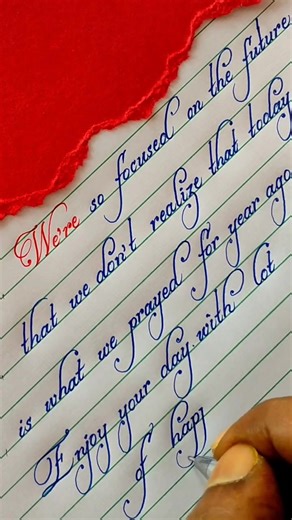 We're so focused on the future
that we don't realize that today
is what we prayed for year ago
Enjoy your day with lot
of hap